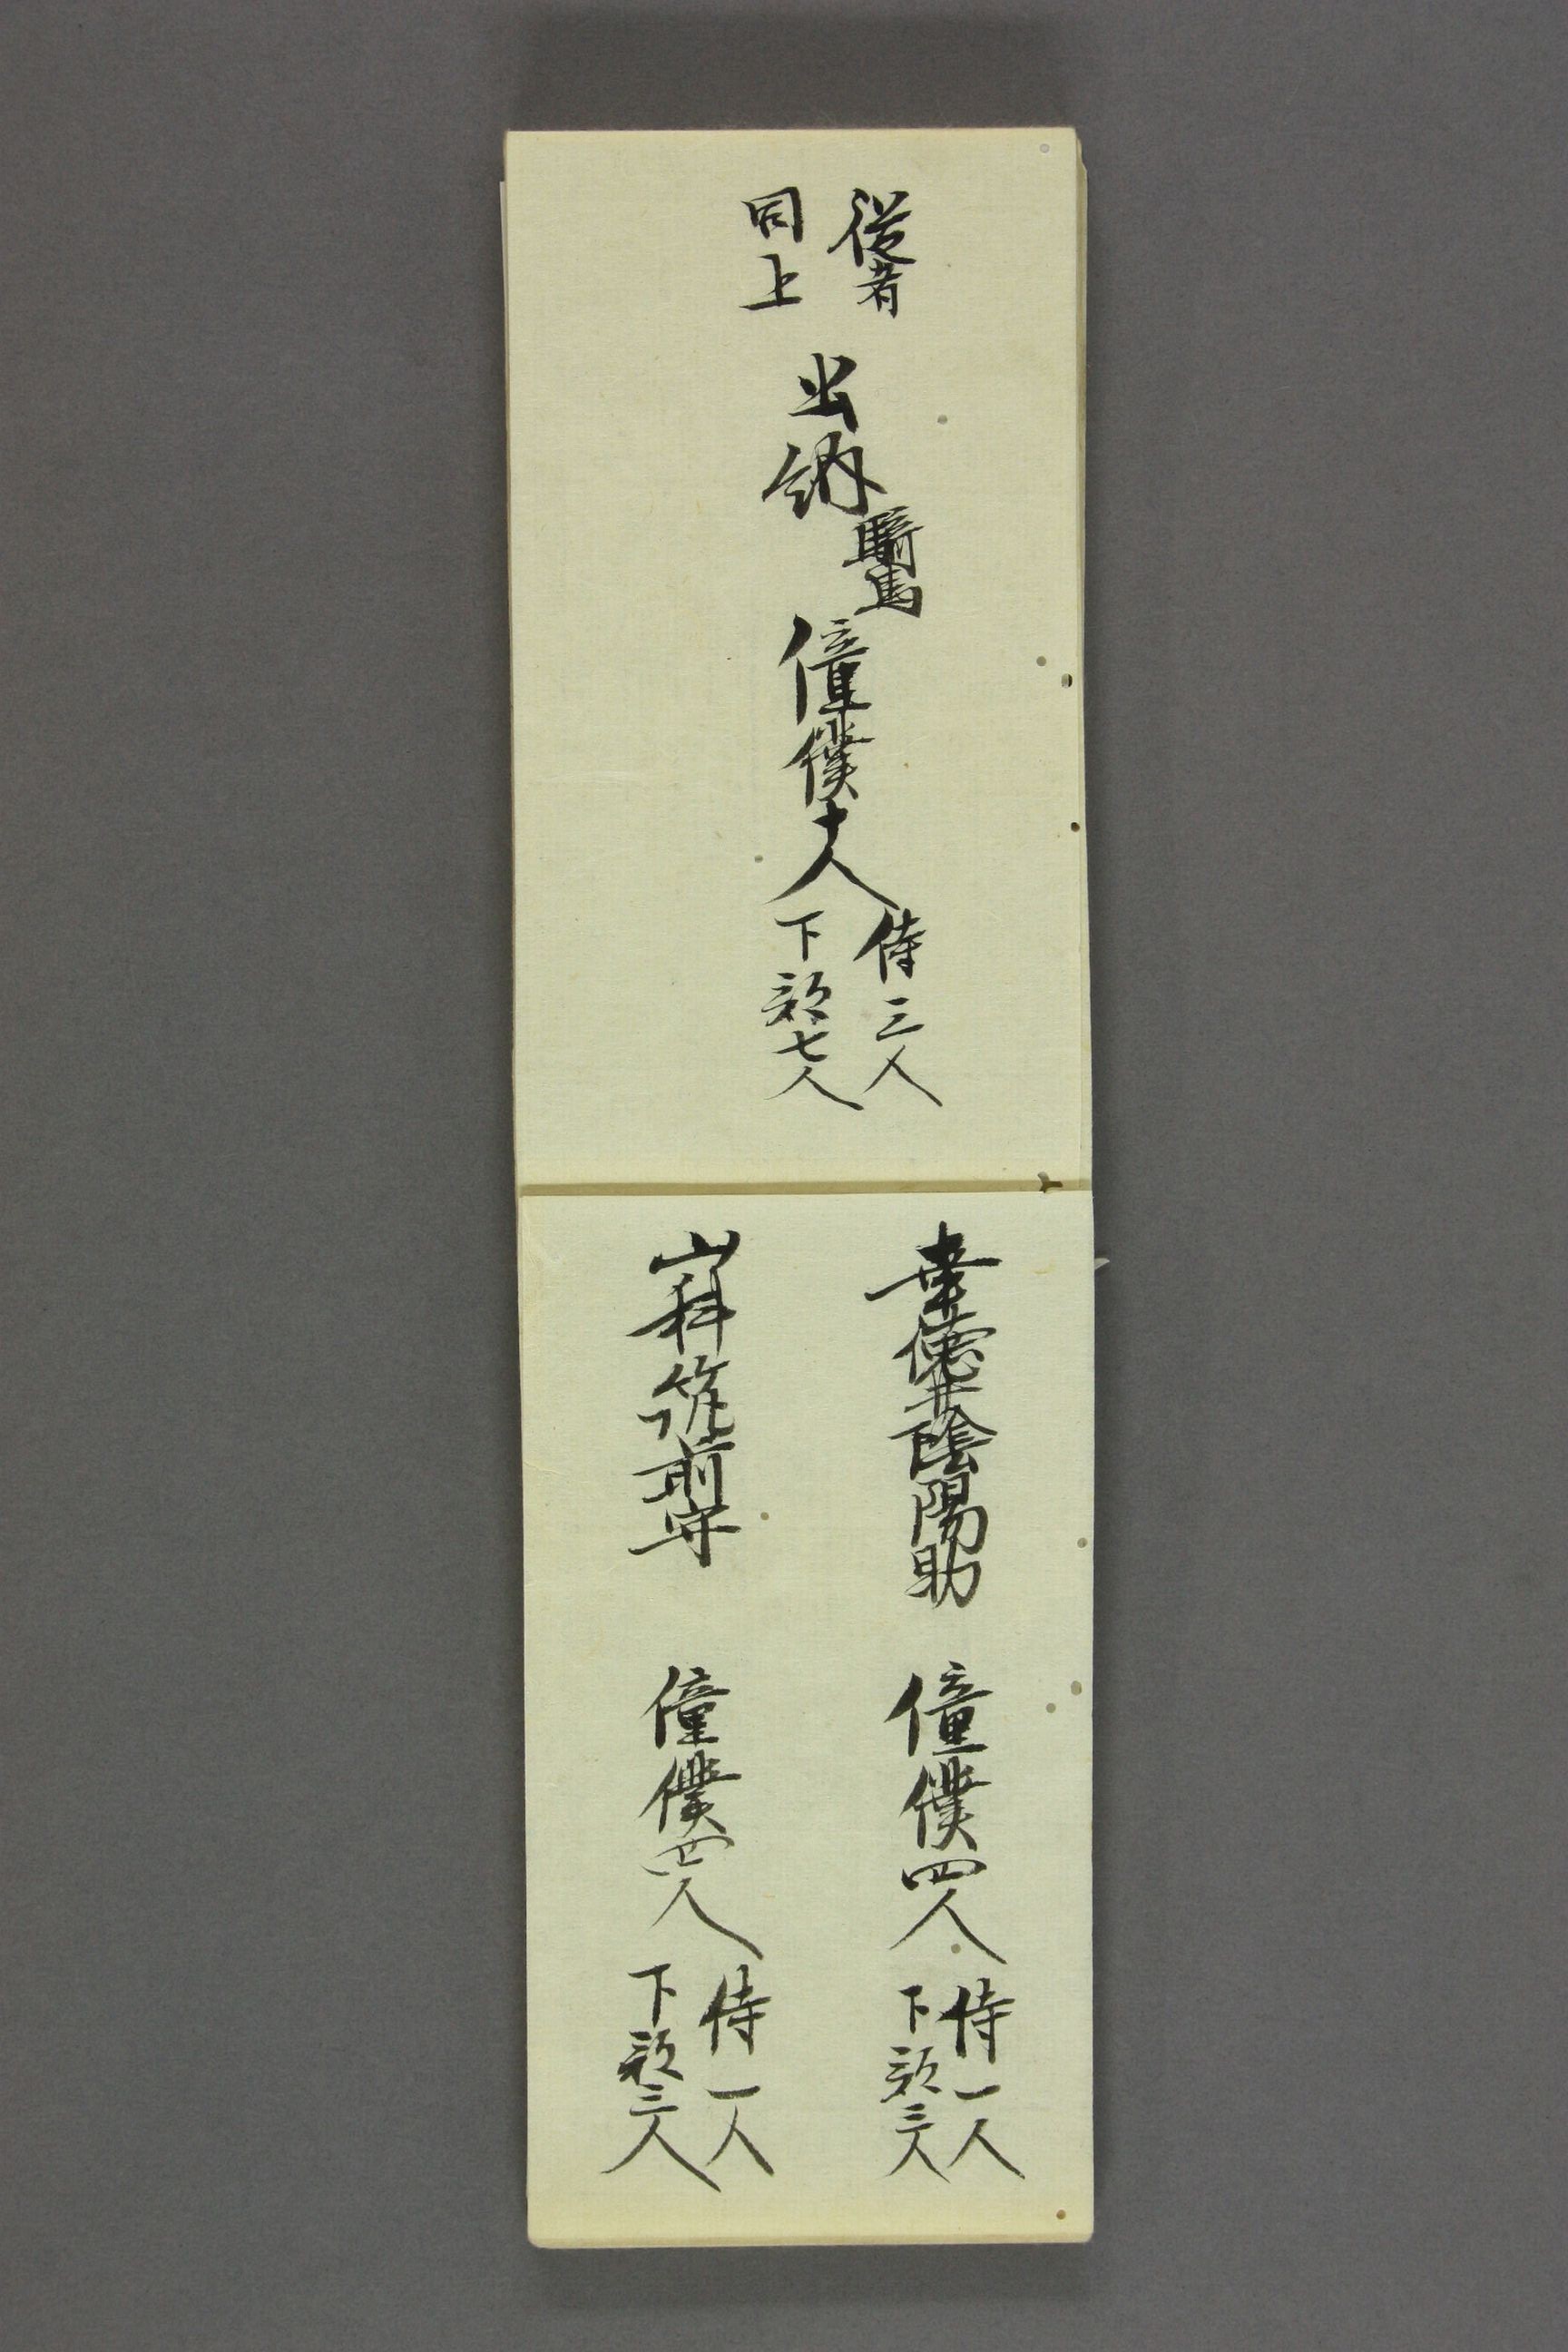 従者
同上
出納
騎馬
僮僕十人
侍三人
下部七人
幸徳井陰陽助
僮僕四人
侍一人
下部三人
山科筑前守
僮僕四人
侍一人
下部三人